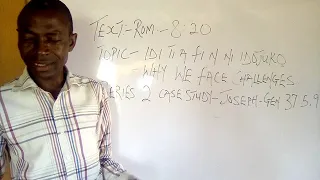 TEXT-ROM-8:20
TOPIC- IDI TI A FI N NI IDOJUKO
WHY WE FACE CHALLENGES
SERIES 2 CASE STUDY-JOSEPH-GEN 37 5.9